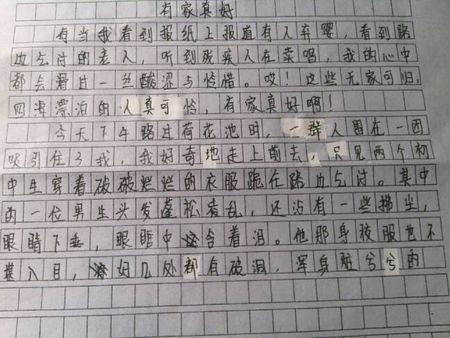 有家真好
每当我看到报纸上报道有人弃婴，看到路
边乞讨的老人，听到残疾人在卖唱，我的心中
都会滑过一丝酸涩与怜惜。哎！这些无家可归，
四海漂泊的人真可怜，有家真好啊！
今天下午路过荷花池时，一群人围在一团
吸引住了我，我好奇地走上前去，只见两个初
中生穿着破破烂烂的衣服跪在路边乞讨。其中
的一位男生头发蓬松凌乱，还沾有一些
眼睛下垂，眼眶中含着泪。他那身校服也不
堪入目，好几处都有破洞，浑身脏兮兮的